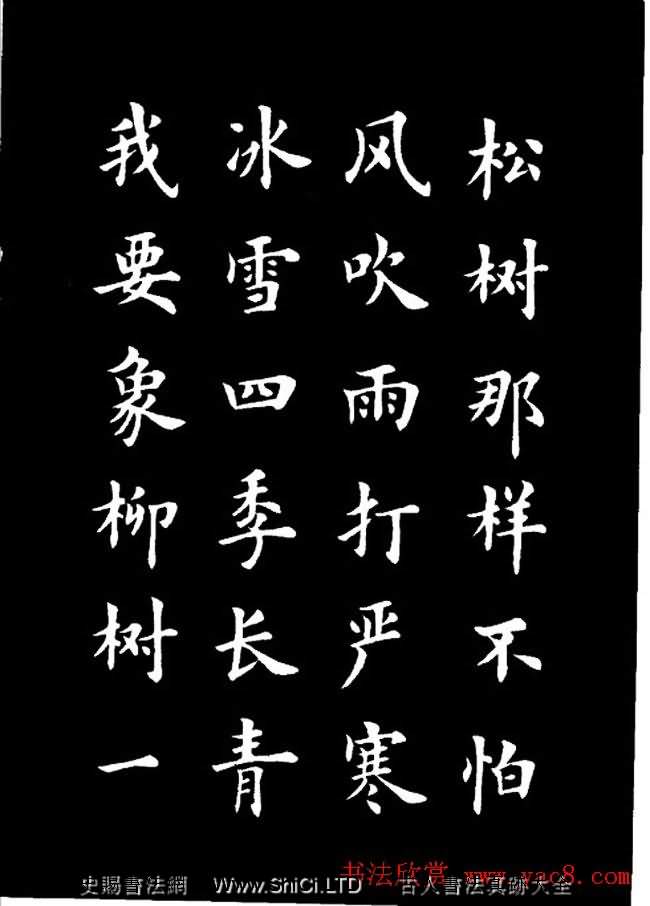 松树那样不怕
风吹雨打严寒
冰雪四季长青
我要象柳树一
书法欣赏 www.yac8.com
史賜書法網 Www.ShiCi.LTD 古人書法真跡大全